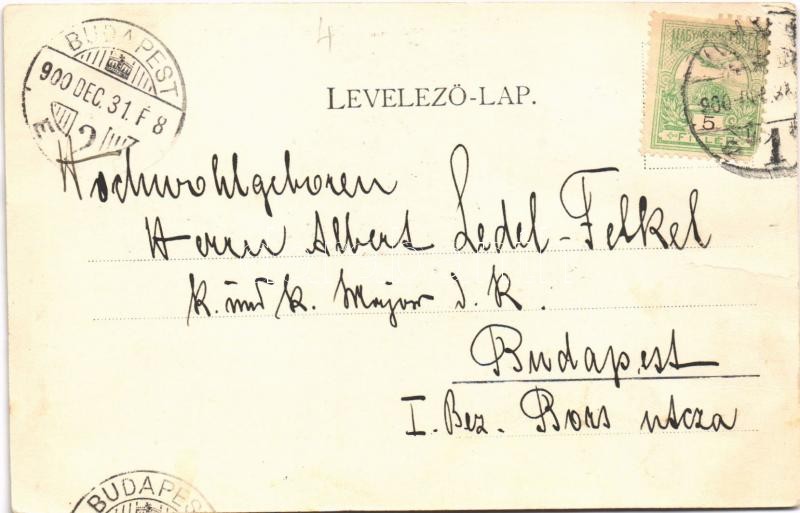 4
BUDAPEST
900 DEC. 31. F 8
LEVELEZŐ-LAP.
MAGYAR KIR. POSTA
5
FILLÉR
1
Hochwohlgeboren
Herrn Albert Ledel-Felkel
K. und k. Major d. R.
Budapest
I. Bez. Bors utcza
BUDAPEST